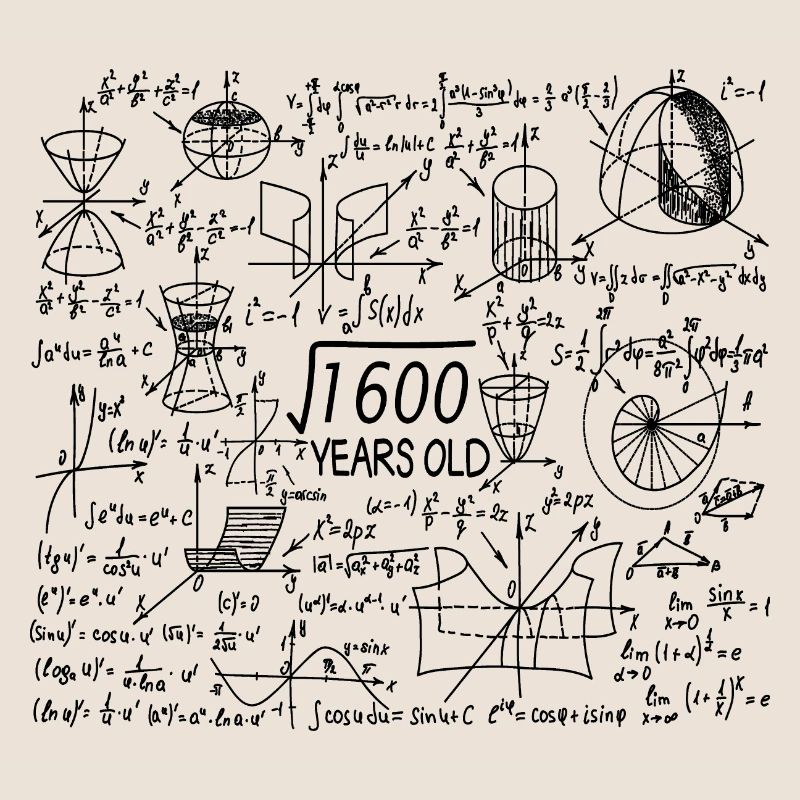 x²/a² + y²/b² + z²/c² = 1
V = ∫_{-π/2}^{+π/2} dφ ∫_0^{a cosφ} √(a²-r²) r dr = 2 ∫_0^{π/2} a³(1-sin³φ)/3 dφ = 2/3 a³(π/2 - 2/3)
i² = -1
∫ du/u = ln|u| + C
x²/a² + y²/b² = 1
x²/a² + y²/b² - z²/c² = -1
x²/a² - y²/b² = 1
V = ∬_D z dσ = ∬_D √(a²-x²-y²) dxdy
x²/a² + y²/b² - z²/c² = 1
i² = -1
V = ∫_a^b S(x)dx
x²/p + y²/q = 2z
∫a^u du = a^u/ln a + C
S = 1/2 ∫_0^{2π} r² dφ = a²/8π² ∫_0^{2π} φ² dφ = 1/3 πa²
√1600
YEARS OLD
y=x³
(ln u)' = 1/u · u'
y=arcsin
∫e^u du = e^u + C
x² = 2pz
(α=-1) x²/p - y²/q = 2z
y² = 2pz
(tg u)' = 1/cos²u · u'
|a| = √(a²x + a²y + a²z)
(e^u)' = e^u · u'
(c)' = 0
(u^α)' = α · u^{α-1} · u'
lim x→0 sin x/x = 1
(sin u)' = cos u · u'
(√u)' = 1/2√u · u'
y=sinx
lim α→0 (1+α)^{1/α} = e
(log_a u)' = 1/u·ln a · u'
(ln u)' = 1/u · u'
(a^u)' = a^u · ln a · u'
∫cos u du = sin u + C
e^{iφ} = cosφ + i sinφ
lim x→∞ (1 + 1/x)^x = e